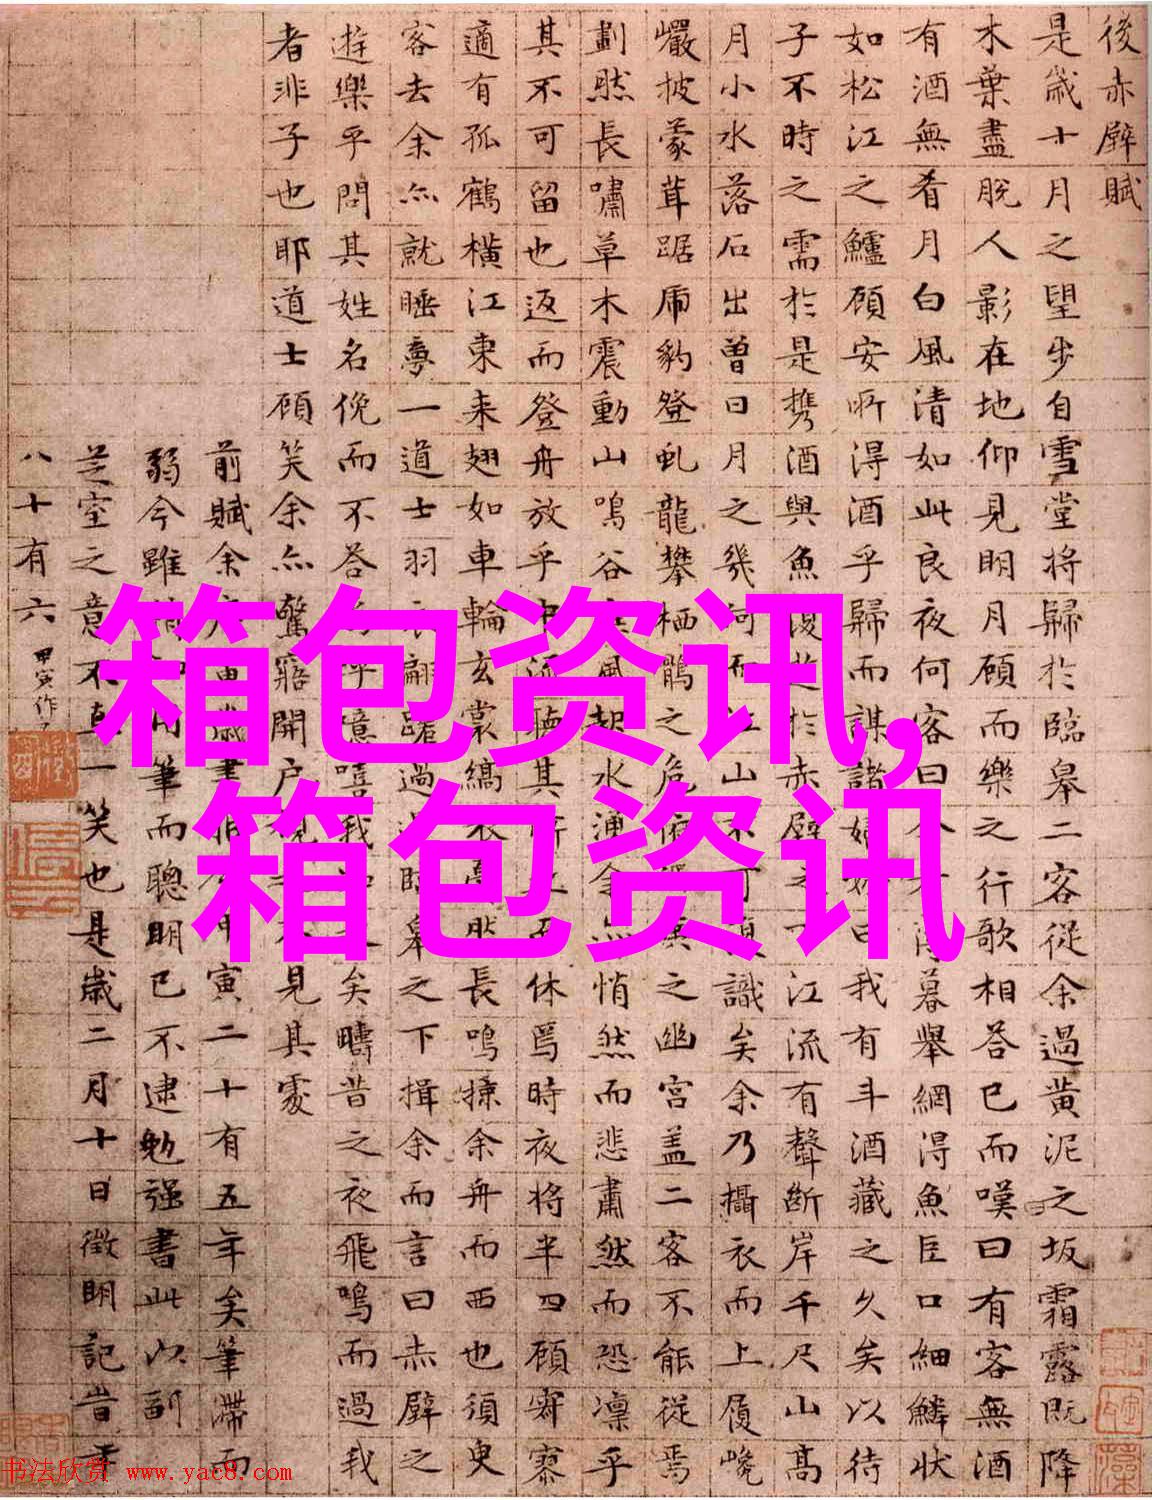 後赤壁賦
是歲十月之望步自雪堂將歸於臨皋二客從余過黃泥之坂霜露既降
木葉盡脫人影在地仰見明月顧而樂之行歌相答已而嘆曰有客無酒
有酒無肴月白風清如此良夜何客曰今者薄暮舉網得魚巨口細鱗狀
如松江之鱸顧安所得酒乎歸而謀諸婦婦曰我有斗酒藏之久矣以待
子不時之需於是携酒與魚復遊於赤壁之下江流有聲斷岸千尺山高
月小水落石出曾日月之幾何而江山不可復識矣余乃攝衣而上履巉
巖披蒙茸踞虎豹登虬龍攀栖鶻之危俯馮夷之幽宮蓋二客不能從焉
劃然長嘯草木震動山鳴谷應風起水涌余亦悄然而悲肅然而恐凜乎
其不可留也返而登舟放乎中流聽其所止而休焉時夜將半四顧寂寥
適有孤鶴橫江東來翅如車輪玄裳縞衣戛然長鳴掠余舟而西也須臾
客去余亦就睡夢一道士羽衣翩躚過臨皋之下揖余而言曰赤壁之
遊樂乎問其姓名俛而不答嗚呼噫嘻我知之矣疇昔之夜飛鳴而過我
者非子也耶道士顧笑余亦驚寤開戶視之不見其處
前賦余歲書甲寅二十有五年矣筆滯而
弱今雖筆而聰明已不逮勉强書此以副
芝室之意不直一笑也是歲二月十日徵明記昔年
八十有六 甲寅作
箱包资讯,
箱包资讯
书法欣赏 www.yac8.com